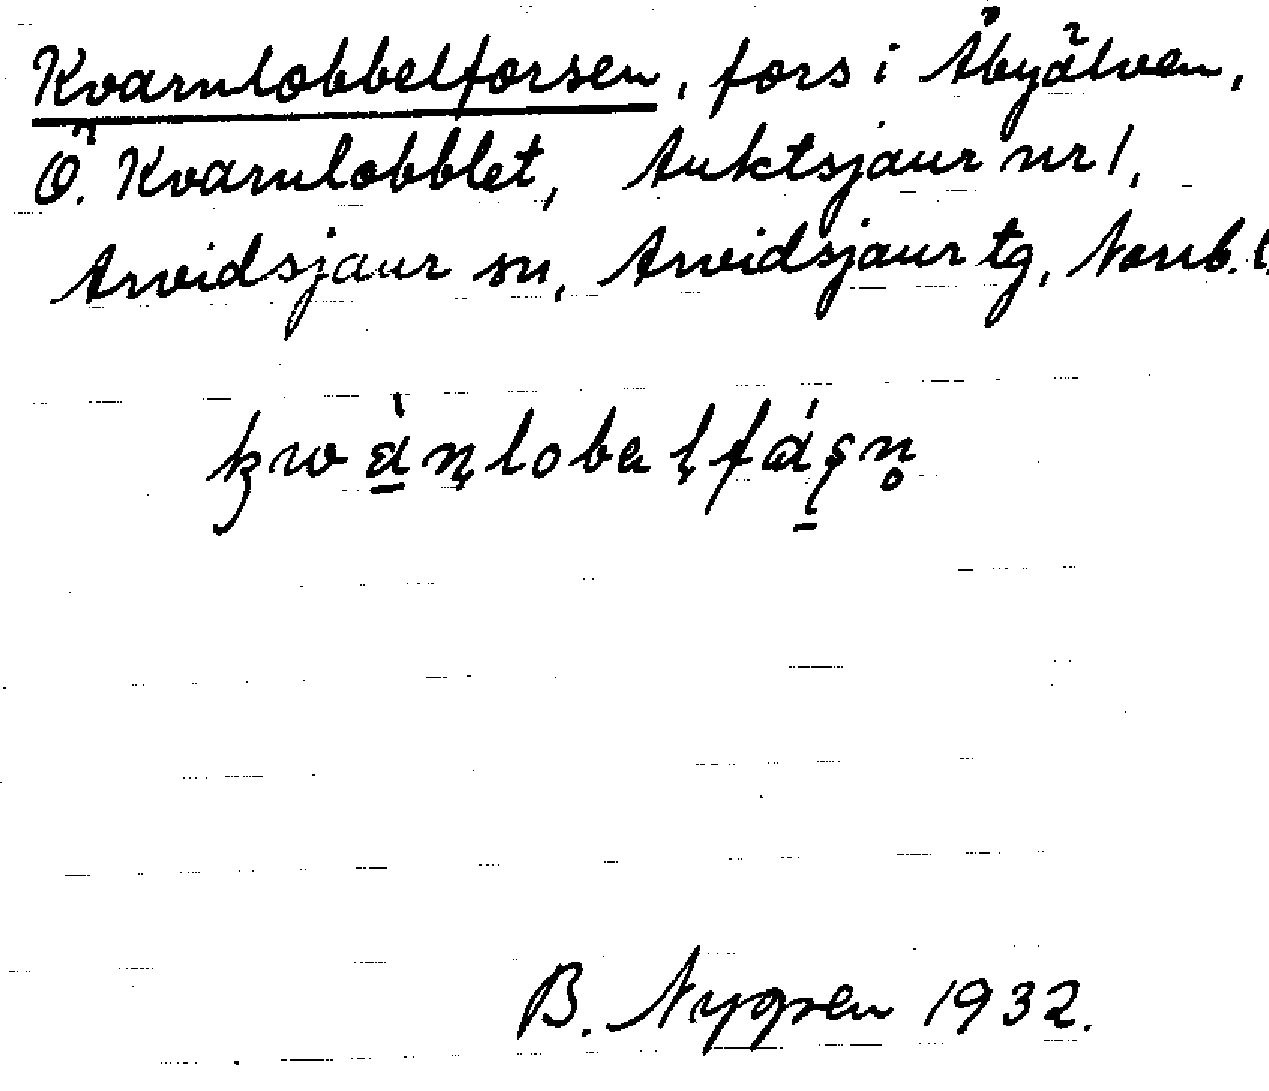 Kvarnlobbelforsen, fors i Åbyälven,
Ö. Kvarnlobblet, Auktsjaur nr 1,
Arvidsjaur sn, Arvidsjaur tg, Norrb. l.
B. Nygren 1932.